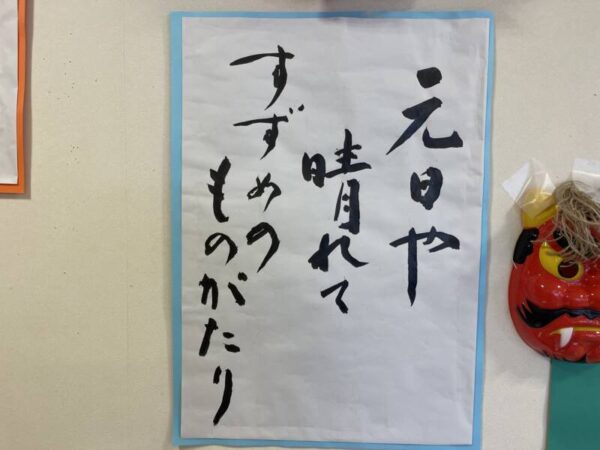 元日や
晴れて
すずめの
ものがたり